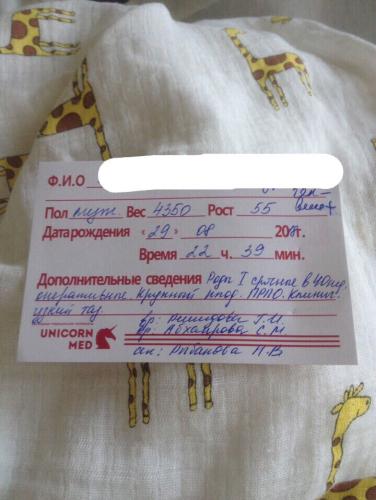 Ф.И.О
Пол муж. Вес 4350 Рост 55
Дата рождения «29» 08 20
Время 22 ч. 39 мин.
Дополнительные сведения Роды I срочные в 40 нед,
оперативные. Крупный плод. ПРПО. Клинич.
узкий таз.
вр: Г.И.
UNICORN вр: С.М
MED
ак: Н.В